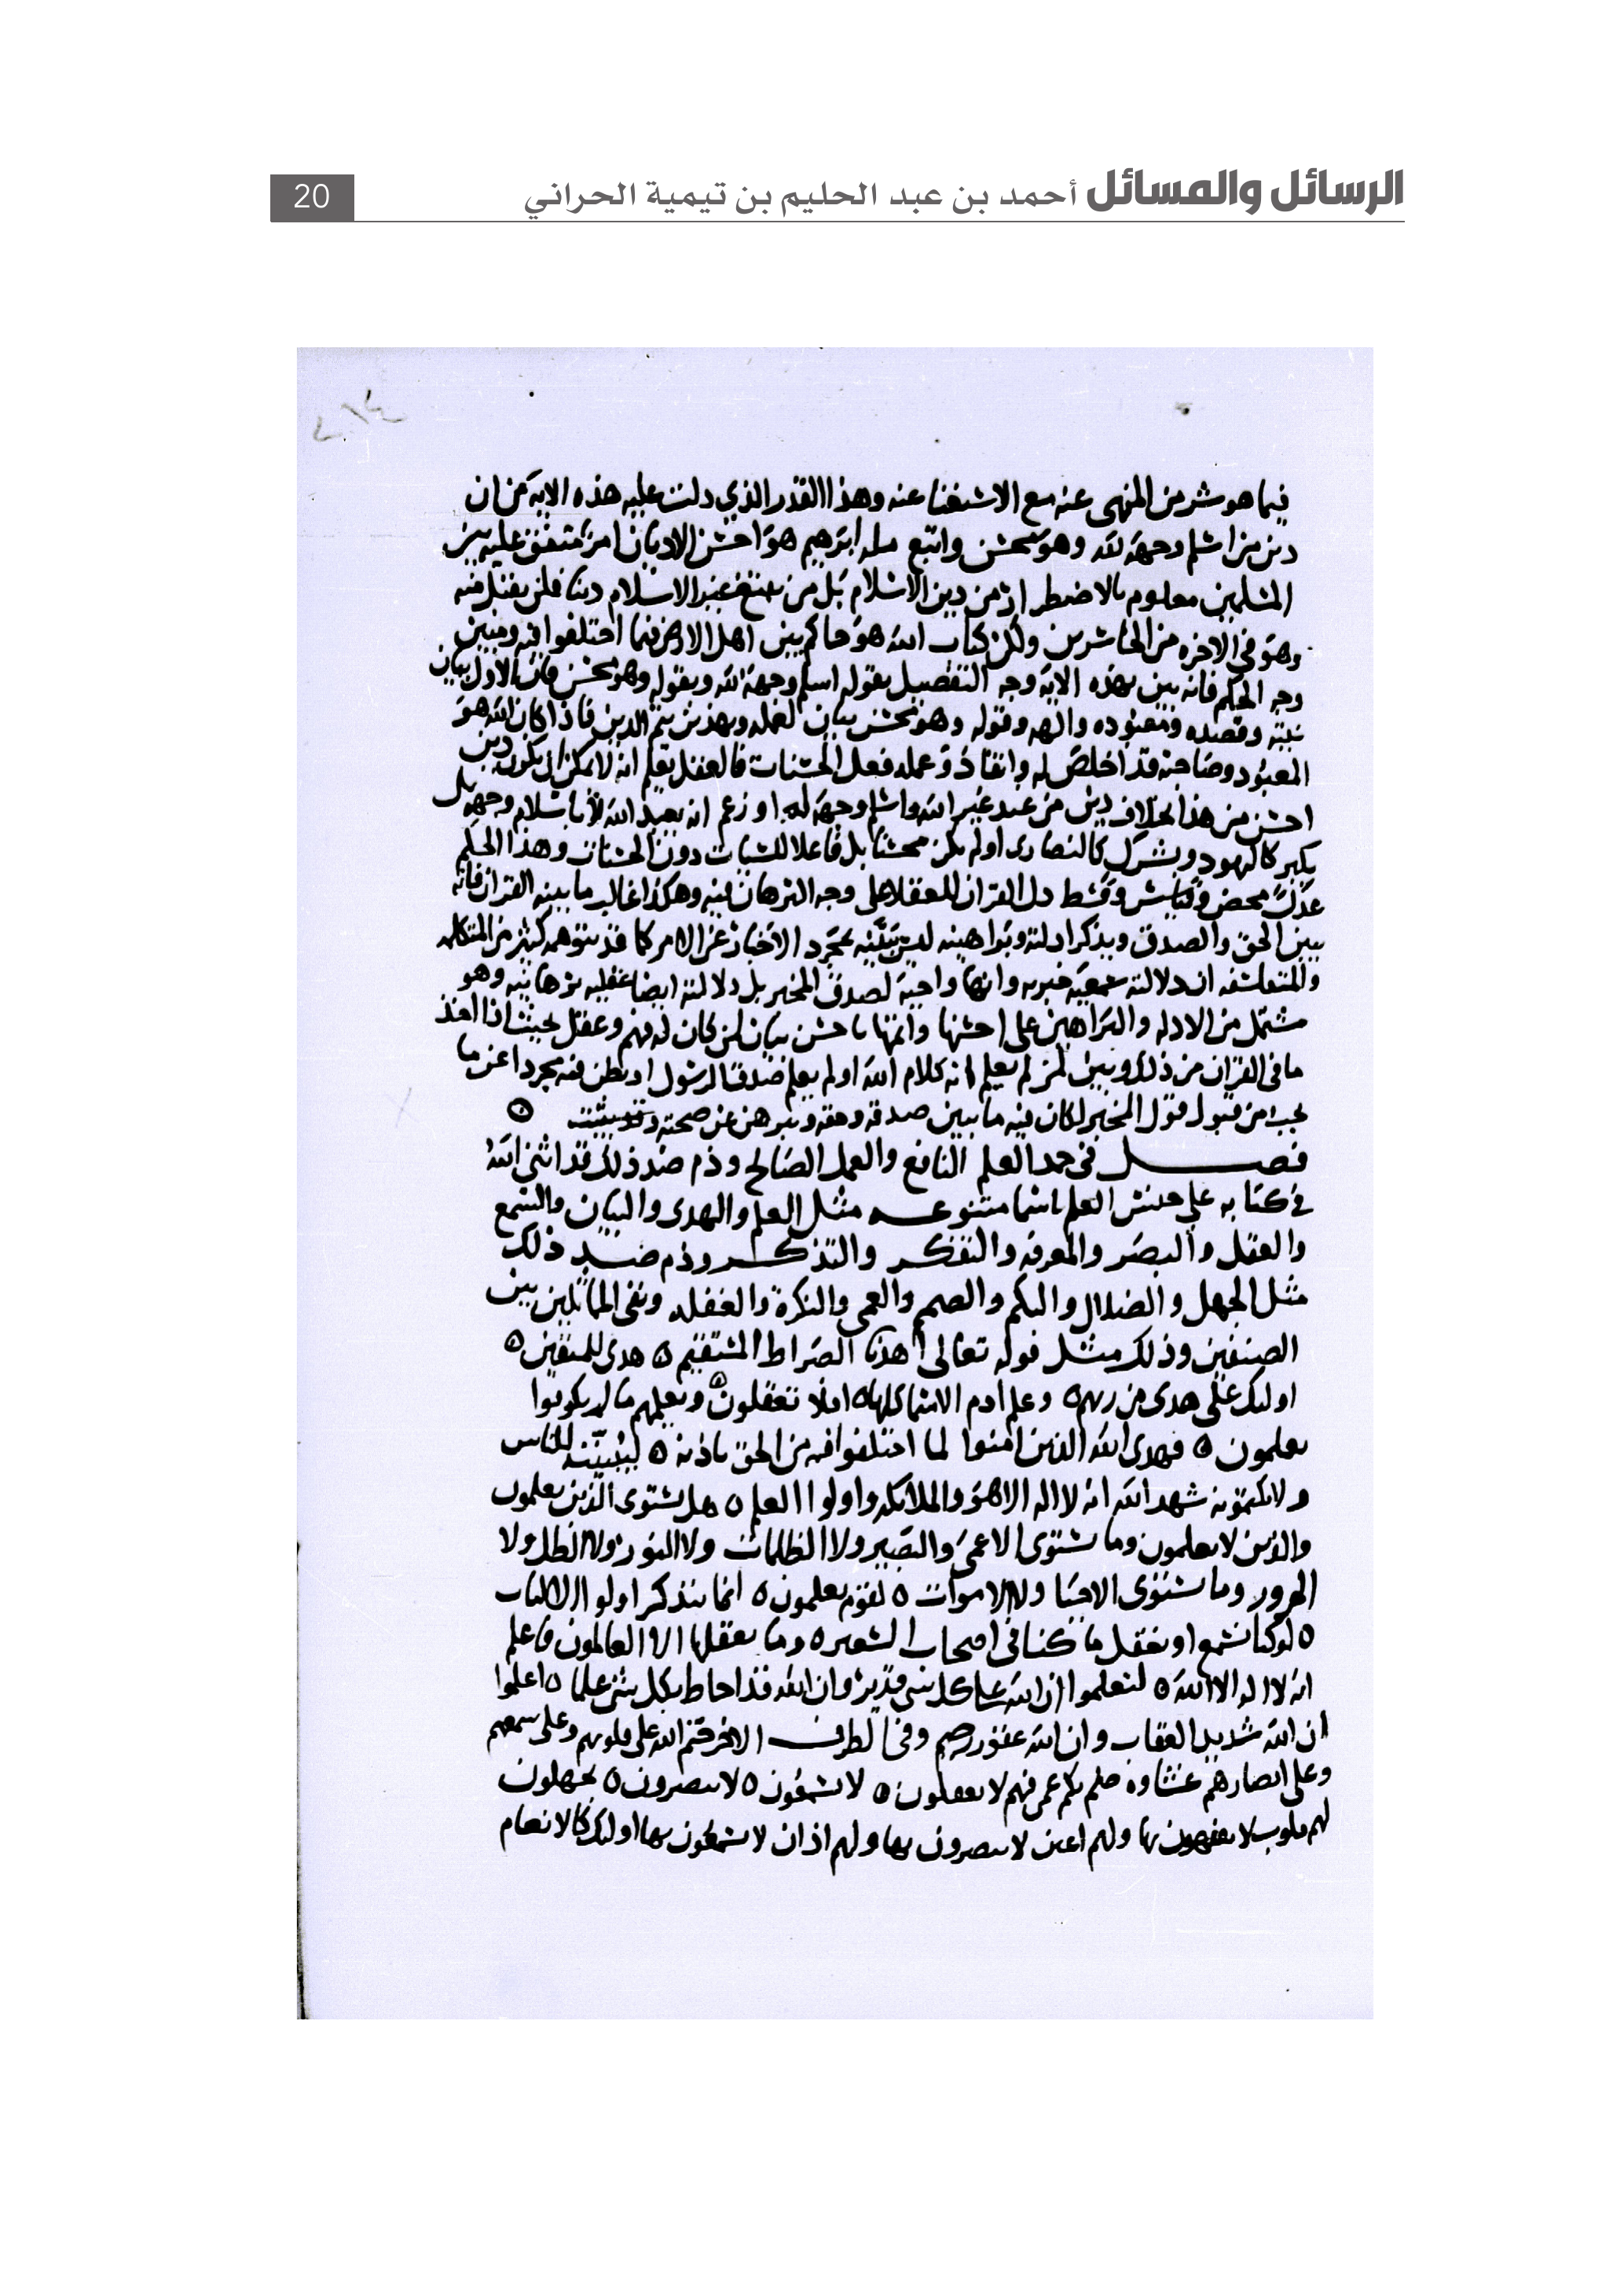 الرسائل والمسائل أحمد بن عبد الحليم بن تيمية الحراني
20
فيما هو شر من المنهى عنه مع الاستغنا عنه وهذا القدر الذي دلت عليه هذه الاية من ان
دين من اسلم وجهه لله وهو محسن واتبع مله ابرهيم هو احسن الاديان امر متفق عليه بين
المسلمين معلوم بالاضطرار من دين الاسلام بل من يبتغ غير الاسلام دينا فلن يقبل منه
وهو في الاخره من الخاسرين ولكن كتاب الله هو حاكم بين اهل الارض فيما اختلفوا فيه ومبين
وجه الحكم فانه بين بهذه الاية وجه التفصيل بقوله اسلم وجهه لله وبقوله وهو محسن فان الاول بيان
نيته وقصده ومعبوده والهه وقوله وهو محسن بيان لعمله وبهذين يتم الدين فاذا كان الله هو
المعبود وصاحبه قد اخلص له وانقاد وعمله فعل الحسنات فالعقل يعلم انه لا يمكن ان يكون دين
احسن من هذا بخلاف دين من عبد غير الله واسلم وجهه له او زعم انه يعبد الله لا باسلام وجهه بل
يكبر كاليهود ويشرك كالنصارى اولم يكن محسنا بل فاعلا للسيات دون الحسنات وهذا الحكم
عدل محض وقياس وقسط دل القران العقلا على وجه البرهان فيه وهكذا غالب ما بينه القران فانه
يبين الحق والصدق ويذكر ادلته وبراهينه ليس يبينه بمجرد الاخبار عن الامر كما قد يتوهمه كثير من المتكلمه
والمتفلسفه ان دلالته سمعية خبريه وانها واجبة لصدق المخبر بل دلالته ايضا عقليه برهانيه وهو
مشتمل من الادله والبراهين على احسنها واتمها باحسن بيان لمن كان له فهم وعقل بحيث اذا اخذ
ما في القران من ذلك وبين لمن لم يعلم انه كلام الله اولم يعلم صدق الرسول او يظن فيه مجردا عن ما
يجب من قبول قول المخبر لكان فيه ما يبين صدقه وحقه ويبرهن عن صحته
فصل في حمد العلم النافع والعمل الصالح وذم ضد ذلك قد اثنى الله
في كتابه علي جنس العلم باسما متنوعه مثل العلم والهدى والبيان والسمع
والعقل والبصر والمعرفه والتفكر والتذكر وذم ضد ذلك
مثل الجهل والضلال والبكم والصمم والعمى والنكرة والغفله ونفى التماثل بين
الصنفين وذلك مثل قوله تعالى اهدنا الصراط المستقيم ٥ هدى للمتقين ٥
اوليك على هدى من ربهم ٥ وعلم ادم الاسما كلها ٥ افلا تعقلون ٥ ويعلمهم ما لم يكونوا
يعلمون ٥ فهدى الله الذين امنوا لما اختلفوا فيه من الحق باذنه ٥ ليبيننه للناس
ولا يكتمونه شهد الله انه لا اله الا هو والملايكه واولوا العلم ٥ هل يستوى الذين يعلمون
والذين لا يعلمون وما يستوى الاعمى والبصير ولا الظلمات ولا النور ولا الظل ولا
الحرور وما يستوى الاحيا ولا الاموات ٥ لقوم يعلمون ٥ انما يتذكر اولوا الالباب
٥ لو كنا نسمع او نعقل ما كنا في اصحاب السعير ٥ وما يعقلها الا العالمون فاعلم
انه لا اله الا الله ٥ لتعلموا ان الله على كل شى قدير وان الله قد احاط بكل شى علما ٥ اعلموا
ان الله شديد العقاب وان الله غفور رحيم وفي الطرف الاخر ختم الله على قلوبهم وعلى سمعهم
وعلى ابصارهم غشاوه صم بكم عمى فهم لا يعقلون ٥ لا يسمعون ٥ لا يبصرون ٥ يجهلون
لهم قلوب لا يفقهون بها ولهم اعين لا يبصرون بها ولهم اذان لا يسمعون بها اوليك كالانعام